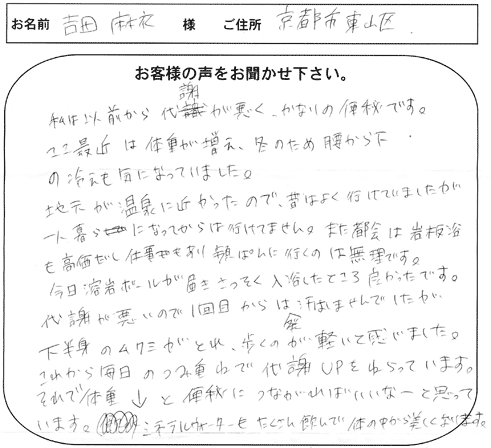 お名前 吉田 麻衣 様 ご住所 京都市東山区.
お客様の声をお聞かせ下さい。
私は以前から代謝が悪く、かなりの便秘です。
ここ最近は体重が増え、冬のため腰から下
の冷えも気になっていました。
地元が温泉に近かったので、昔はよく行けていましたが
一人暮らしになってからは行けてません。また都会は岩板浴
も高価だし仕事もあり頻ぱんに行くのは無理です。
今日溶岩ボールが届きさっそく入浴したところ良かったです。
代謝が悪いので1回目からは汗はしませんでしたが、
下半身のムクミがとれ、歩くのが軽いと感じました。
これから毎日のつみ重ねで代謝UPをねらっています。
それで体重↓と便秘につながればいいな〜と思って
います。ミネラルウォーターもたくさん飲んで体の中から美しくなります。